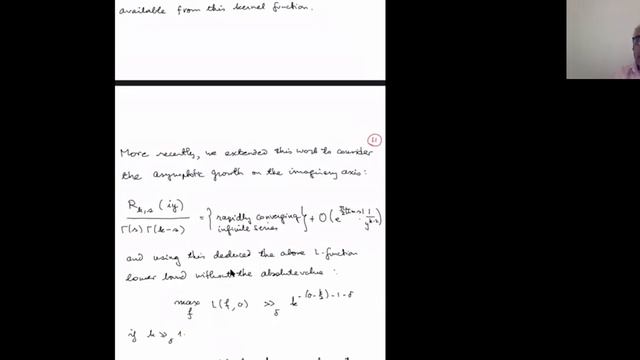 available from this kernel function.
11
More recently, we extended this work to consider
the asymptotic growth on the imaginary axis:
R_{k,s}(iy) / Γ(s)Γ(k-s) = {rapidly converging infinite series} + O(e^{
and using this deduced the above L-function
lower bound without the absolute value:
max_f L(f,σ) ≫_δ k^{-(σ-k/2)-1-δ}
if k ≫_δ 1.